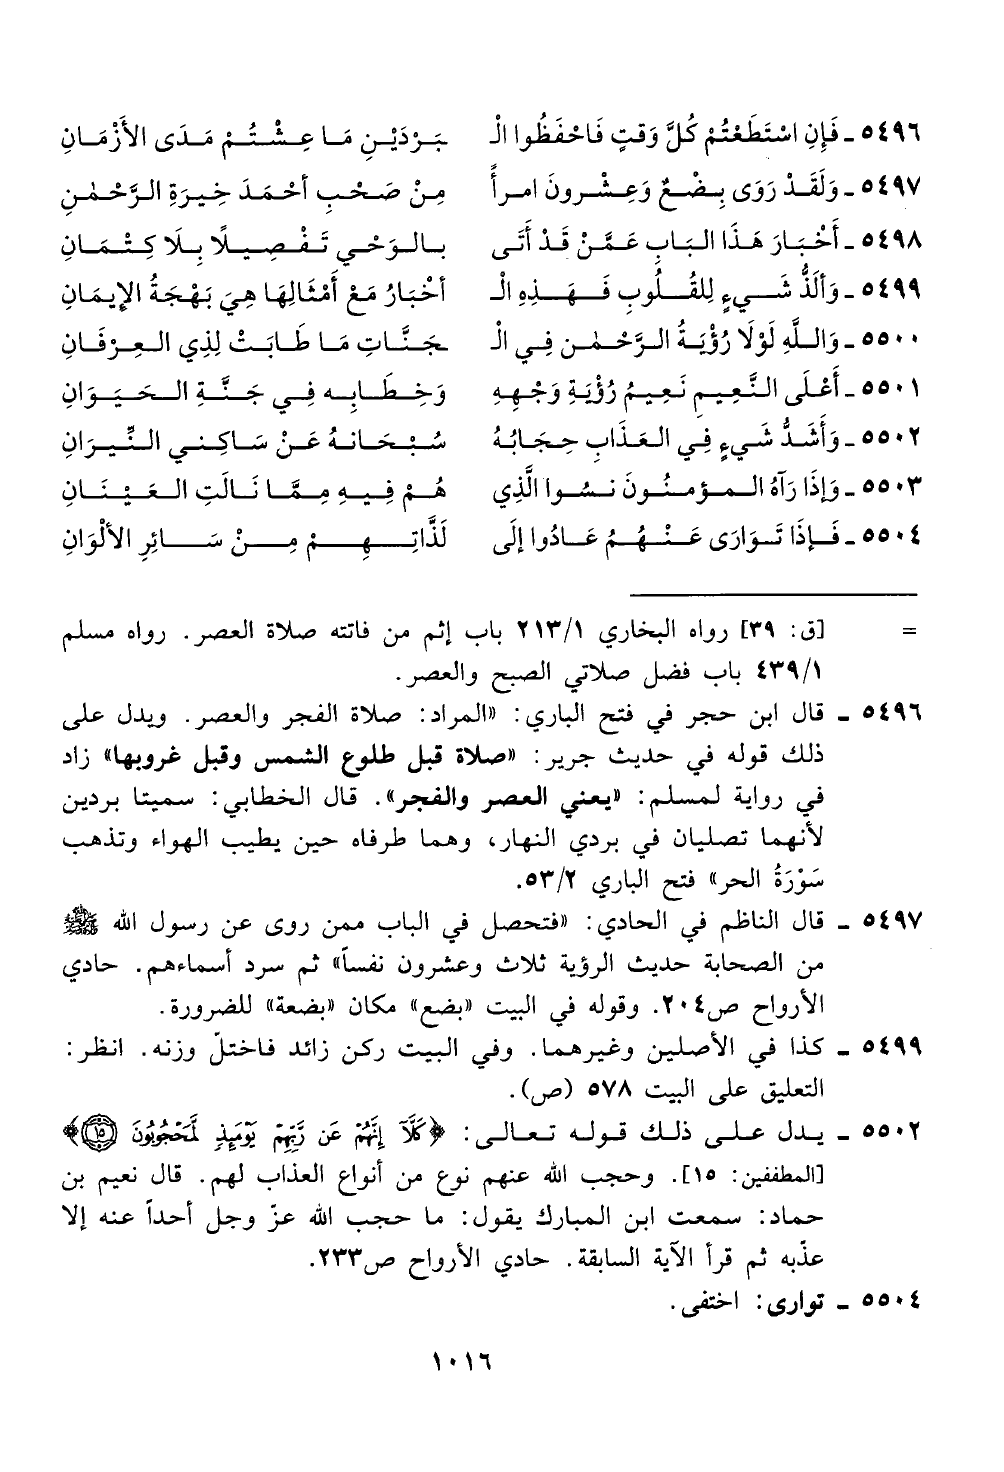 ٥٤٩٦ ـ فَإِنِ اسْتَطَعْتُمْ كُلَّ وَقتٍ فَاحْفَظُوا الْـ بَرْدَيْنِ مَا عِشْتُمْ مَدَى الأَزْمَانِ
٥٤٩٧ ـ وَلَقَدْ رَوَى بِضْعٌ وَعِشْرونَ امرأً مِنْ صَحْبِ أحْمَدَ خِيرَةِ الرَّحْمٰنِ
٥٤٩٨ ـ أَخْبَارَ هَذَا البَابِ عَمَّنْ قَدْ أَتَى بالوَحْي تَفْصِيلًا بِلَا كِتْمَانِ
٥٤٩٩ ـ وَألَذُّ شَيءٍ لِلقُلُوبِ فَهَذِهِ الْـ أخْبَارُ مَعْ أَمْثَالِهَا هِيَ بَهْجَةُ الإيمَانِ
٥٥٠٠ ـ وَاللَّهِ لَوْلَا رُؤْيَةُ الرَّحْمٰنِ فِي الْـ ـجَنَّاتِ مَا طَابَتْ لِذِي العِرْفَانِ
٥٥٠١ ـ أَعْلَى النَّعِيمِ نَعِيمُ رُؤْيَةِ وَجْهِهِ وَخِطَابِهِ فِي جَنَّةِ الحَيَوَانِ
٥٥٠٢ ـ وَأَشَدُّ شَيءٍ فِي العَذَابِ حِجَابُهُ سُبْحَانَهُ عَنْ سَاكِنِي النِّيرَانِ
٥٥٠٣ ـ وَإذَا رَآهُ المُؤمِنُونَ نَسُوا الَّذِي هُمْ فِيهِ مِمَّا نَالَتِ العَيْنَانِ
٥٥٠٤ ـ فَإذَا تَوَارَى عَنْهُمُ عَادُوا إلَى لَذَّاتِهِمْ مِنْ سَائِرِ الألْوَانِ
= [ق: ٣٩] رواه البخاري ٢١٣/١ باب إثم من فاتته صلاة العصر. رواه مسلم
٤٣٩/١ باب فضل صلاتي الصبح والعصر.
٥٤٩٦ ـ قال ابن حجر في فتح الباري: «المراد: صلاة الفجر والعصر. ويدل على
ذلك قوله في حديث جرير: «صلاة قبل طلوع الشمس وقبل غروبها» زاد
في رواية لمسلم: «يعني العصر والفجر». قال الخطابي: سميتا بردين
لأنهما تصليان في بردي النهار، وهما طرفاه حين يطيب الهواء وتذهب
سَوْرَةُ الحر» فتح الباري ٥٣/٢.
٥٤٩٧ ـ قال الناظم في الحادي: «فتحصل في الباب ممن روى عن رسول الله ﷺ
من الصحابة حديث الرؤية ثلاث وعشرون نفساً» ثم سرد أسماءهم. حادي
الأرواح ص٢٠٤. وقوله في البيت «بضع» مكان «بضعة» للضرورة.
٥٤٩٩ ـ كذا في الأصلين وغيرهما. وفي البيت ركن زائد فاختلّ وزنه. انظر:
التعليق على البيت ٥٧٨ (ص).
٥٥٠٢ ـ يدل على ذلك قوله تعالى: ﴿كَلَّا إِنَّهُمْ عَن رَّبِّهِمْ يَوْمَئِذٍ لَّمَحْجُوبُونَ ⑮﴾
[المطففين: ١٥]. وحجب الله عنهم نوع من أنواع العذاب لهم. قال نعيم بن
حماد: سمعت ابن المبارك يقول: ما حجب الله عزّ وجل أحداً عنه إلا
عذّبه ثم قرأ الآية السابقة. حادي الأرواح ص٢٣٣.
٥٥٠٤ ـ توارى: اختفى.
١٠١٦